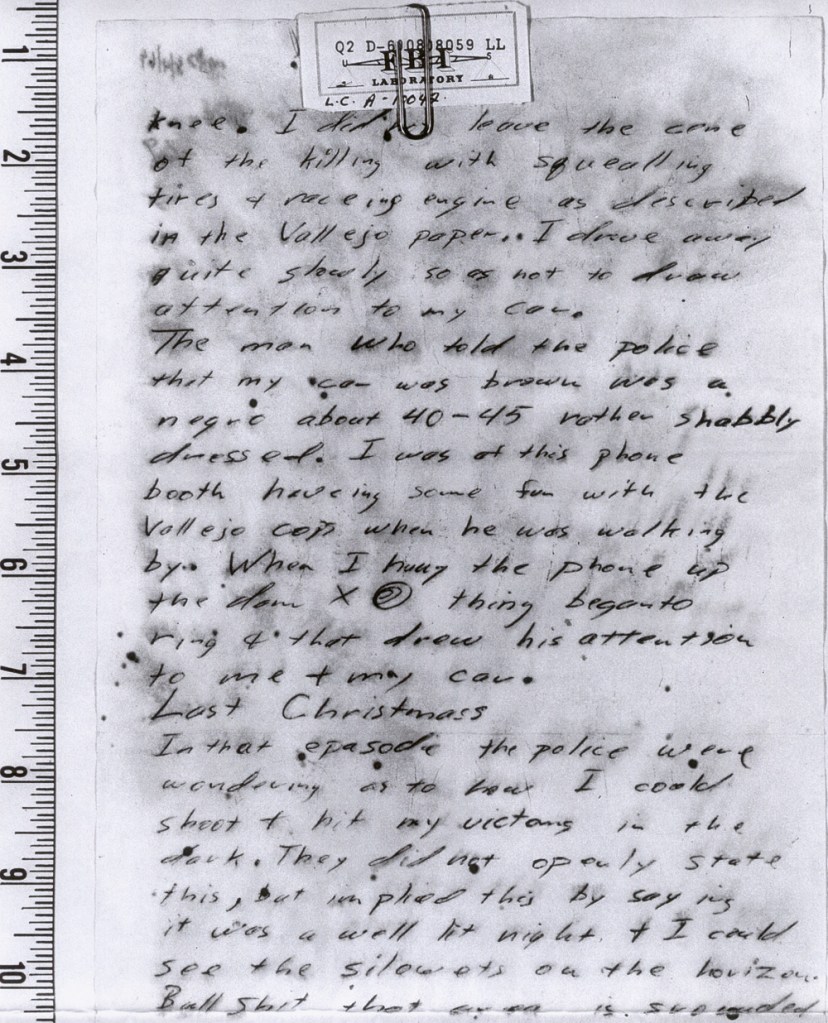 Q2 D-600808059 LL
FBI
LABORATORY
L.C. A-10042
knee. I did leave the cene
of the killing with squealling
tires & raceing engine as described
in the Vallejo paper. I drove away
quite slowly so as not to draw
attention to my car.
The man who told the police
that my car was brown was a
negro about 40-45 rather shabbly
dressed. I was at this phone
booth haveing some fun with the
Vallejo cops when he was walking
by. When I hung the phone up
the dam X thing beganto
ring & that drew his attention
to me & my car.
Last Christmass
In that epasode the police were
wondering as to how I could
shoot & hit my victoms in the
dark. They did not openly state
this, but implied this by saying
it was a well lit night & I could
see the silowets on the horizon.
Bull Shit that area is srounded
1
2
3
4
5
6
7
8
9
10